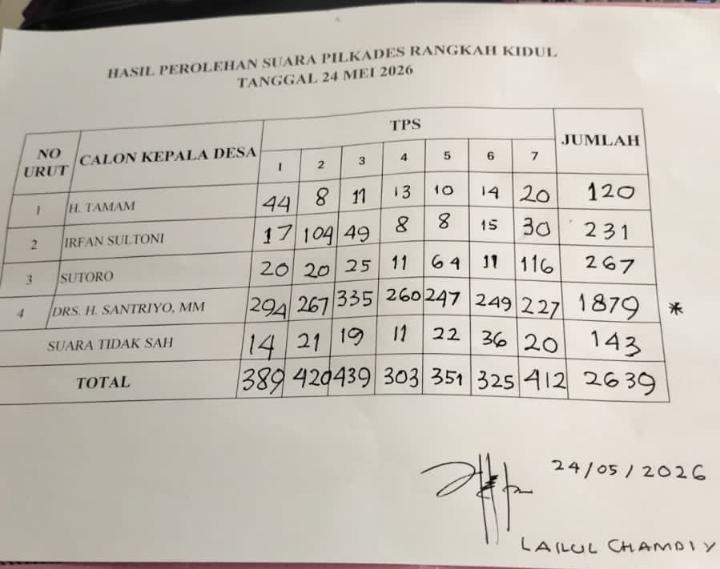 HASIL PEROLEHAN SUARA PILKADES RANGKAH KIDUL
TANGGAL 24 MEI 2026
NO URUT CALON KEPALA DESA TPS JUMLAH
1 2 3 4 5 6 7
1 H. TAMAM 44 8 11 13 10 14 20 120
2 IRFAN SULTONI 17 104 49 8 8 15 30 231
3 SUTORO 20 20 25 11 64 11 116 267
4 DRS. H. SANTRIYO, MM 294 267 335 260 247 249 227 1879 *
SUARA TIDAK SAH 14 21 19 11 22 36 20 143
TOTAL 389 420 439 303 351 325 412 2639
24/05/2026
LAILUL CHAMDIY